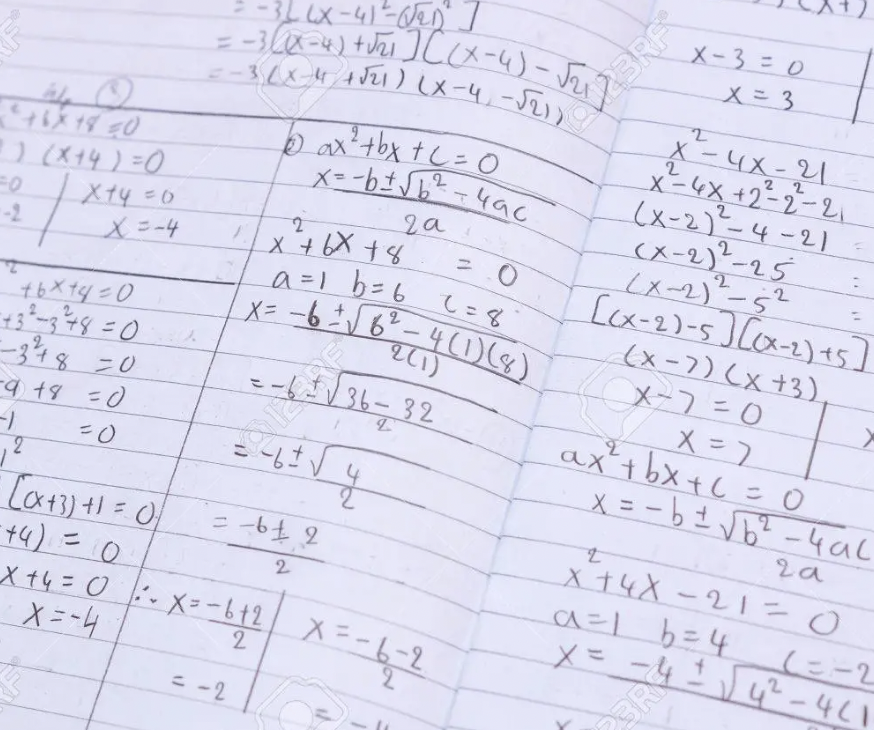 = -3[(x-4)²-(√21)²]
= -3[(x-4)+√21][(x-4)-√21]
= -3(x-4+√21)(x-4,-√21),
x²+6x+8=0
) (x+4)=0
=0 | x+4=0
-2 | x=-4
² +6x+8=0
+3²-3²+8=0
-3²+8 =0
-9 +8 =0
-1 =0
1²
[(x+3)+1=0
+4) = 0
x+4=0
x=-4
ax²+bx+c=0
x=-b±√b²-4ac
2a
x²+6x+8 = 0
a=1 b=6 c=8
x= -6±√6²-4(1)(8)
2(1)
= -6±√36-32
2
= -6±√4
2
= -6±2
2
∴ x=-6+2 | x=-6-2
2 | 2
= -2 | = -4
(x+)
x-3=0
x=3
x²-4x-21
x²-4x+2²-2²-21
(x-2)²-4-21 =
(x-2)²-25 =
(x-2)²-5² =
[(x-2)-5][(x-2)+5]
(x-7)(x+3)
x-7=0 | x
x=7
ax²+bx+c=0
x=-b±√b²-4ac
2a
x²+4x-21=0
a=1 b=4 c=-2
x= -4±√4²-4(1
123RF